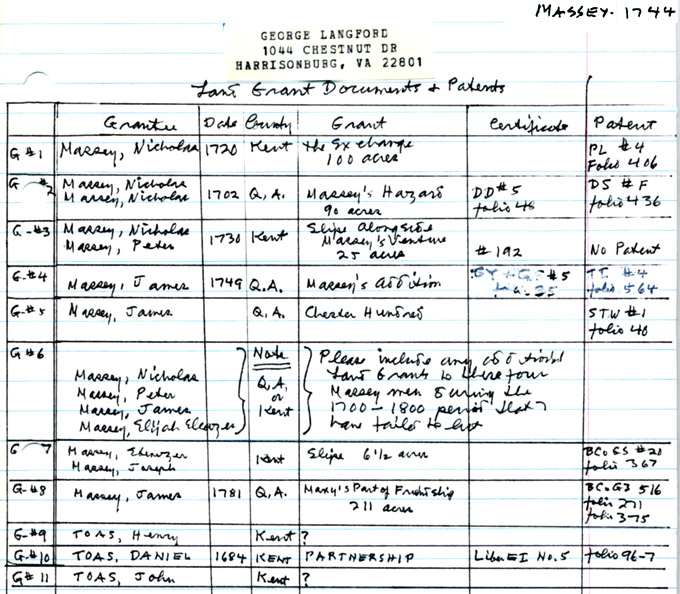 MASSEY. 1744
GEORGE LANGFORD
1044 CHESTNUT DR
HARRISONBURG, VA 22801
Land Grant Documents & Patents
Grantee Date County Grant Certificate Patent
G#1 Massey, Nicholas 1720 Kent the Exchange PL #4
100 acres Folio 406
G #2 Massey, Nicholas 1702 Q.A. Massey's Hazard DD#5 DS #F
Massey, Nicholas 90 acres folio 48 folio 436
G-#3 Massey, Nicholas 1730 Kent Slipe Alongside
Massey, Peter Massey's Venture # 192 No Patent
25 acres
G-#4 Massey, James 1749 Q.A. Massey's addition #5 TT. #4
folio 564
G-#5 Massey, James Q.A. Chester Hundred STW #1
folio 40
G#6 Note Please include any additional
Massey, Nicholas Q.A. Land Grants to these four
Massey, Peter or Massey men during the
Massey, James Kent 1700-1800 period that I
Massey, Elijah Ebenezer have failed to list
G 7 Massey, Ebenezer Kent Slipe 6 1/2 acres BC&GS #20
Massey, Joseph folio 367
G-#8 Massey, James 1781 Q.A. Maxy's Part of Friendship BC&GS 516
211 acres folio 271
folio 375
G-#9 TOAS, Henry Kent ?
G-#10 TOAS, DANIEL 1684 KENT PARTNERSHIP Liber EI No.5 folio 96-7
G#11 TOAS, John Kent ?